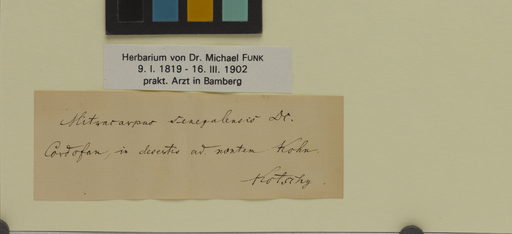 Herbarium von Dr. Michael FUNK
9. I. 1819 - 16. III. 1902
prakt. Arzt in Bamberg
Mitracarpus senegalensis DC.
Cordofan, in desertis ad montem Kohn.
Kotschy.